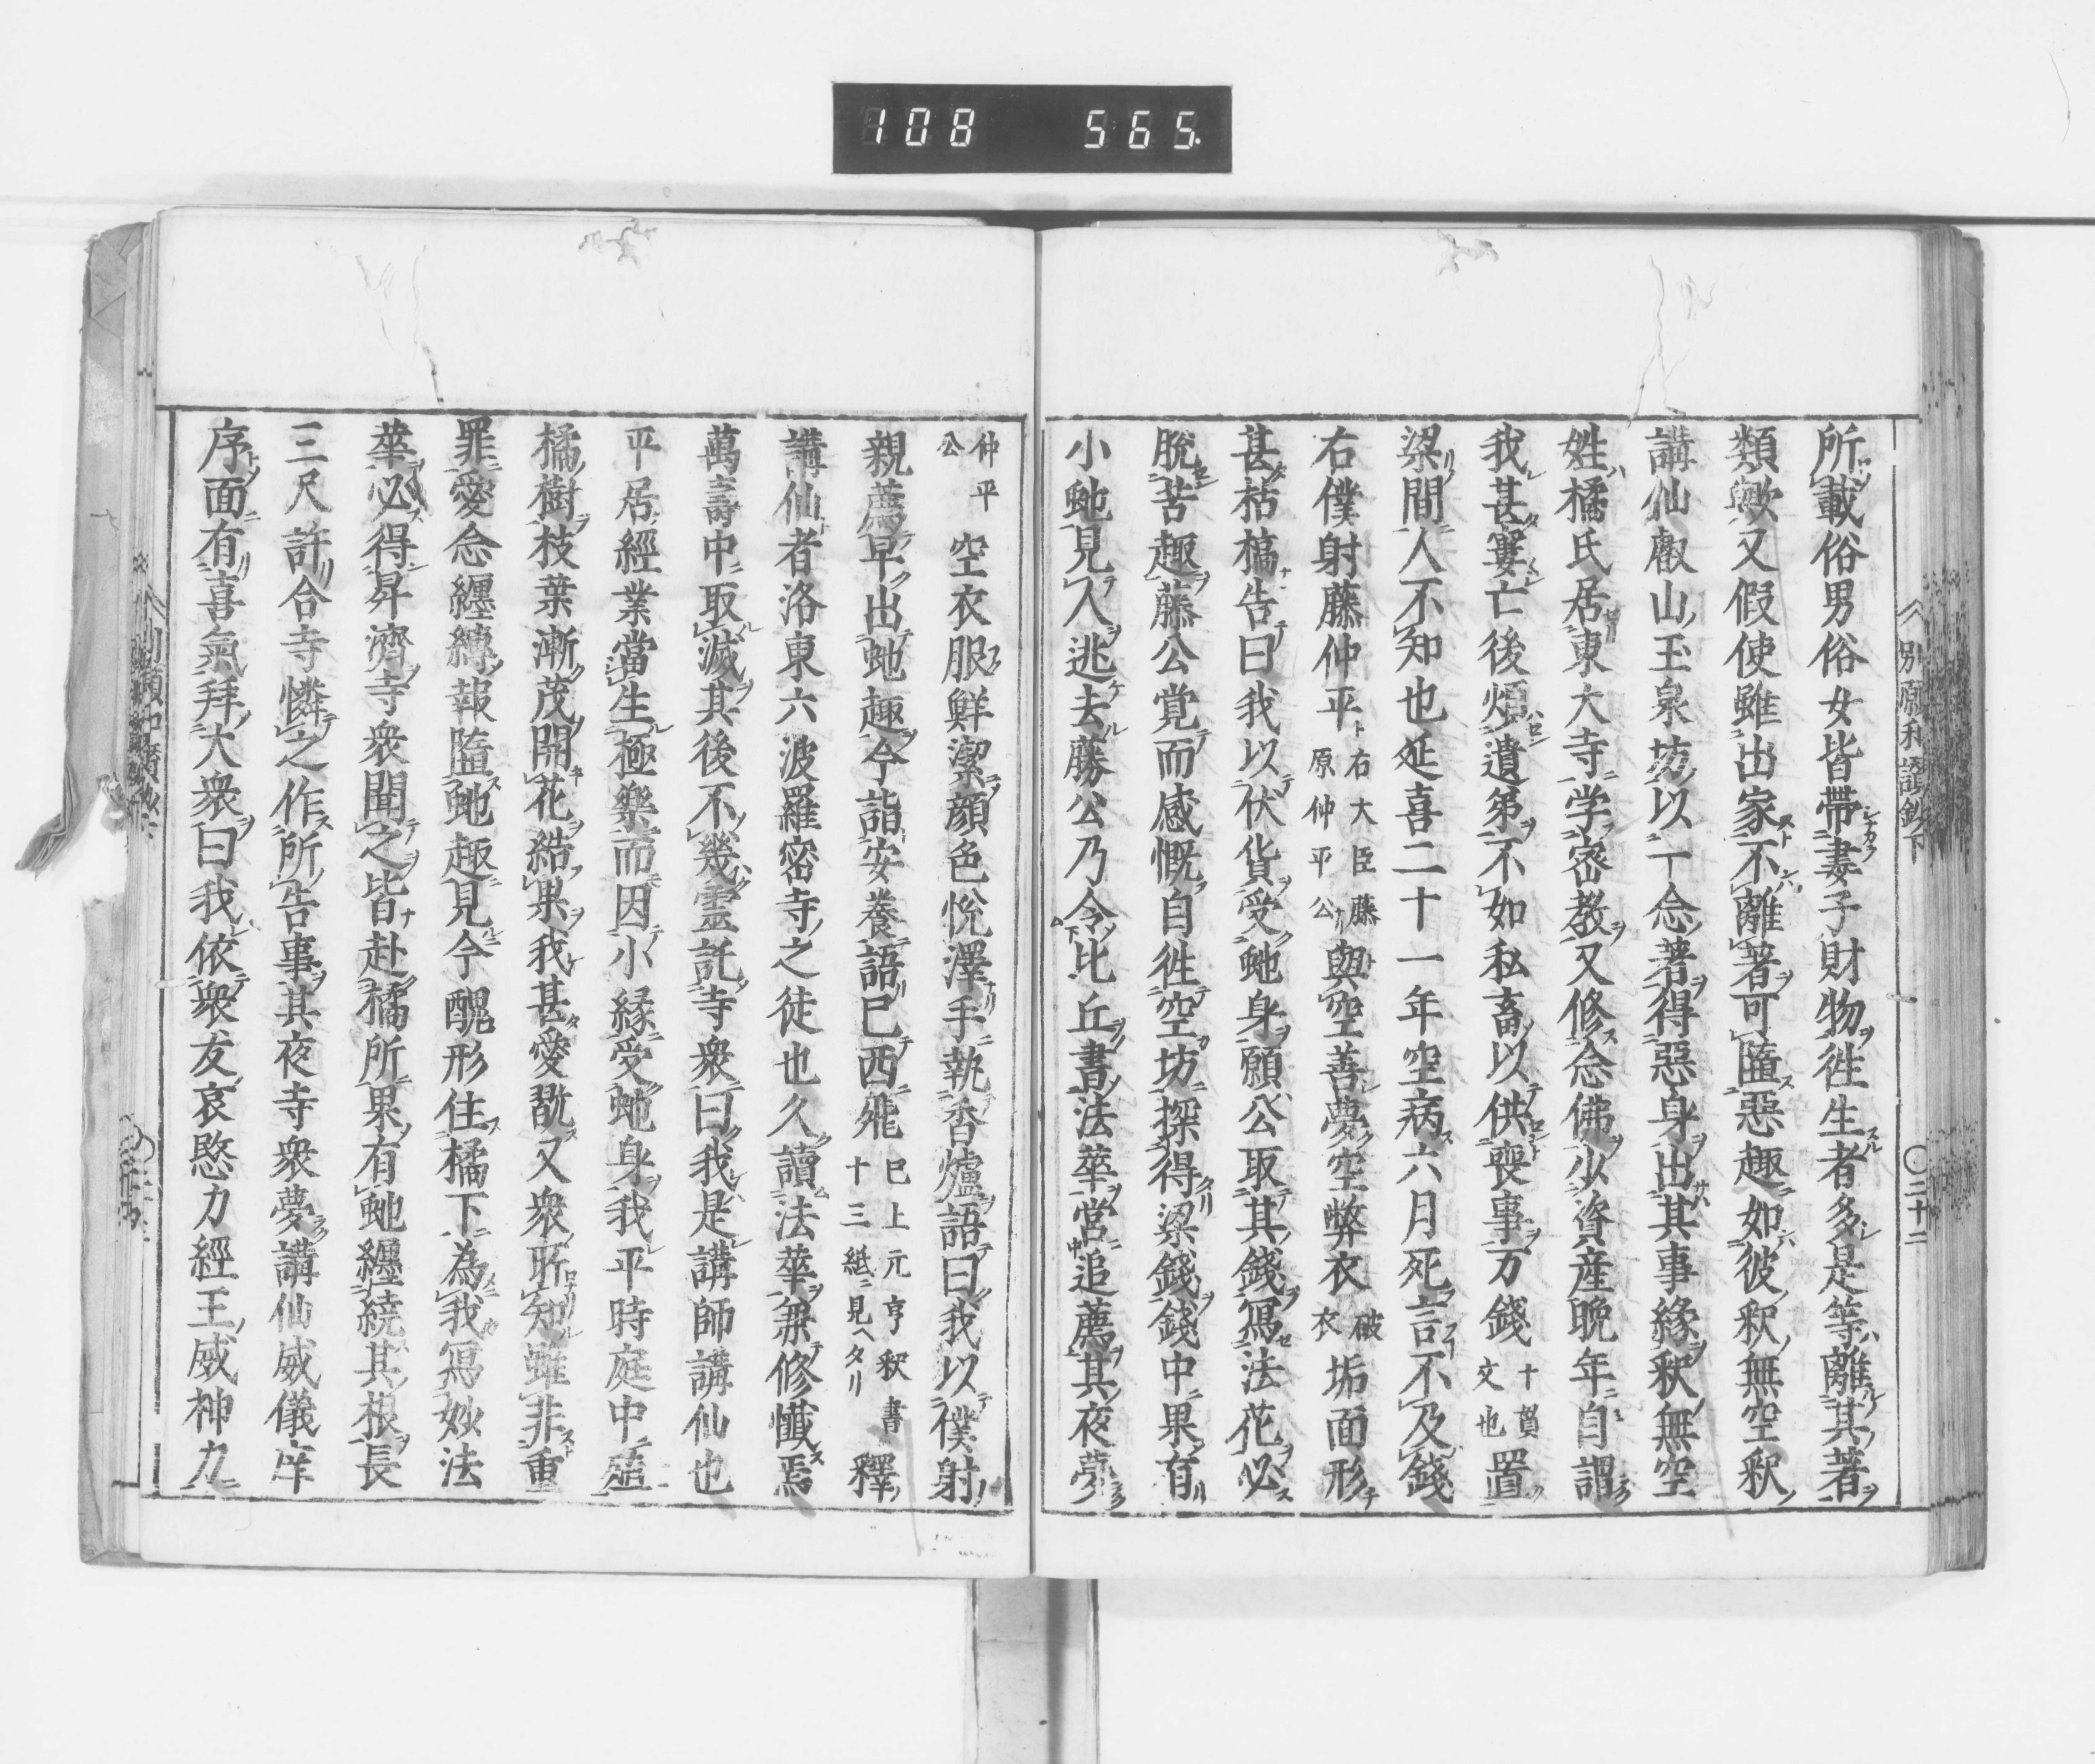 108 565.
別願和讃鈔下 〇三十二
所載俗男俗女皆帶妻子財物徃生者多是等離其著
類歟又假使雖出家不離著可隨惡趣如彼釈無空釈
講仙叡山玉泉坊以一念著得惡身出其事緣釈無空
姓橘氏居東大寺学密教又修念佛少資産晩年自謂
我甚窶亡後煩遺弟不如私畜以供喪事万錢十貫文也置
梁間人不知也延喜二十一年空病六月死言不及錢
右僕射藤仲平右大臣藤原仲平公與空善夢空弊衣破衣垢面形
甚枯槁告曰我以伏貨受虵身願公取其錢寫法花必
脫苦趣藤公覚而感慨自徃空坊探得梁錢錢中果有
小虵見人逃去藤公乃令比丘書法華営追薦其夜夢
仲平公空衣服鮮潔顔色悅澤手執香爐語曰我以僕射
親薦早出虵趣今詣安養語已西飛已上元亨釈書十三紙ニ見ヘタリ釋
講仙者洛東六波羅密寺之徒也久讀法華兼修懺焉
萬壽中取滅其後不幾霊託寺衆曰我是講師講仙也
平居經業當生極樂而因小緣受虵身我平時庭中殖
橘樹枝葉漸茂開花結果我甚愛翫又衆所知雖非重
罪愛念纏縛報隨虵趣見今醜形住橘下為我寫妙法
華必得昇濟寺衆聞之皆赴橘所果有虵纏繞其根長
三尺許合寺憐之作所告事其夜寺衆夢講仙威儀庠
序面有喜氣拜大衆曰我依衆友哀愍力經王威神力